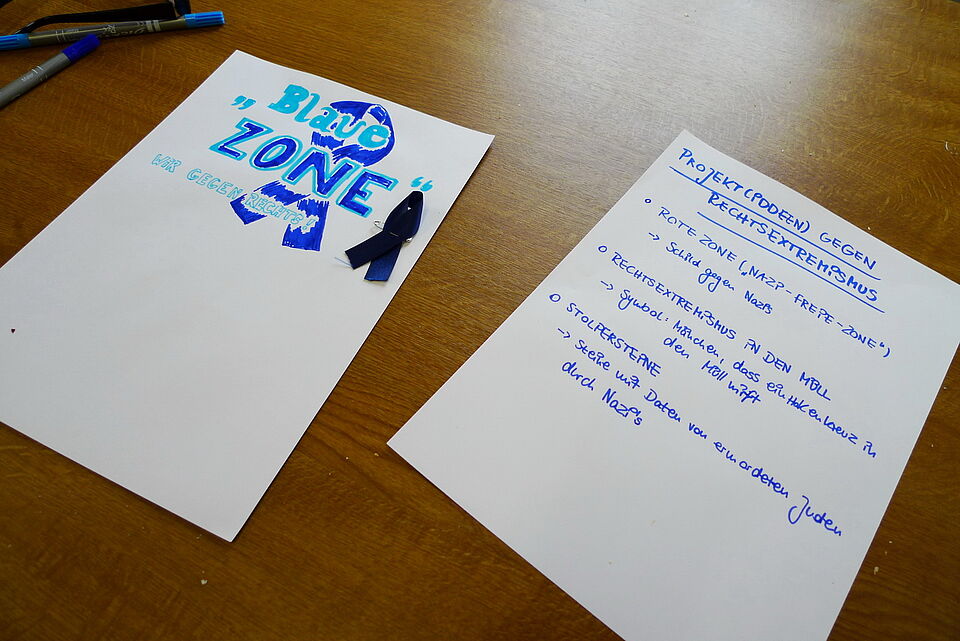 „Blaue
ZONE“
WIR GEGEN RECHTS!
PROJEKT(IDDEEN) GEGEN
RECHTSEXTREMISMUS
ROTE ZONE („NAZI-FREIE-ZONE“)
→ Schild gegen Nazis
RECHTSEXTREMISMUS IN DEN MÜLL
→ Symbol: Mänchen, dass ein Hakenkreuz in
den Müll wirft
STOLPERSTEINE
→ Steine mit Daten von ermordeten Juden
durch Nazi's